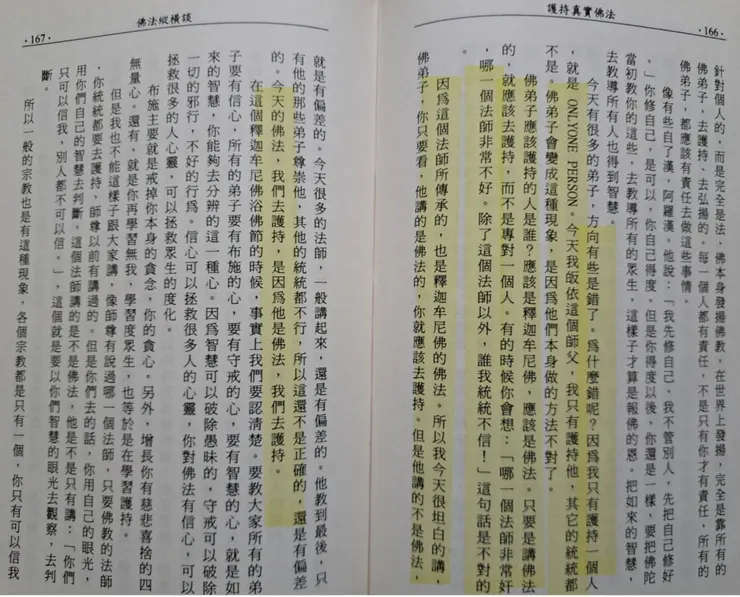 護持真實佛法
·166·
針對個人的，而是完全是法，佛本身發揚佛教，在世界上發揚，完全是靠所有的
佛弟子，去護持、去弘揚的。每一個人都有責任，不是只有你才有責任，所有的
佛弟子，都應該有責任去做這些事情。
像有些自了漢，阿羅漢，他說：「我先修自己，我不管別人，先把自己修好
。」你修自己，是可以，你自己得度。但是你得度以後，你還是一樣，要把佛陀
當初教你的這些，去教導所有的眾生，這樣子才算是報佛的恩。把如來的智慧，
去教導所有人也得到智慧。
今天有很多的弟子，方向有些是錯了。為什麼錯呢？因為我只有護持一個人
，就是 ONLYONE PERSON。今天我皈依這個師父，我只有護持他，其它的統統都
不是。佛弟子會變成這種現象，是因為他們本身做的方法不對了。
佛弟子應該護持的人是誰？應該是釋迦牟尼佛，應該是佛法。只要是講佛法
的，就應該去護持，而不是專對一個人。有的時候你會想：「哪一個法師非常好
，哪一個法師非常不好。除了這個法師以外，誰我統統不信！」這句話是不對的
。
因為這個法師所傳承的，也是釋迦牟尼佛的佛法。所以我今天很坦白的講，
佛弟子，你只要看，他講的是佛法的，你就應該去護持。但是他講的不是佛法，
佛法縱橫談
·167·
就是有偏差的。今天很多的法師，一般講起來，還是有偏差的。他教到最後，只
有他的那些弟子尊崇他，其他的統統都不行，所以這還不是正確的，還是有偏差
的。今天的佛法，我們去護持，是因為他是佛法，我們去護持。
在這個釋迦牟尼佛浴佛節的時候，事實上我們要認清楚。要教大家所有的弟
子要有信心，所有的弟子要有布施的心，要有守戒的心，要有智慧的心，就是如
來的智慧，你能夠去分辨的這一種心。因為智慧可以破除愚昧的，守戒可以破除
一切的邪行，不好的行為。信心可以拯救很多人的心靈，你對佛法有信心，可以
拯救很多的人心靈，可以拯救眾生的度化。
布施主要就是戒掉你本身的貪念，你的貪心。另外，增長你有慈悲喜捨的四
無量心。還有，就是你再學習無我，學習度眾生，也等於是在學習護持。
但是我也不能這樣子跟大家講，像師尊有說過哪一個法師，只要佛教的法師
，你統統都要去護持，師尊以前有講過的。但是你們去的話，你用自己的眼光，
用你們自己的智慧去判斷，這個法師講的是不是佛法，他是不是只有講：「你們
只可以信我，別人都不可以信。」，這個就是要以你們智慧的眼光去觀察，去判
斷。
所以一般的宗教也是有這種現象，各個宗教都是只有一個，你只有可以信我